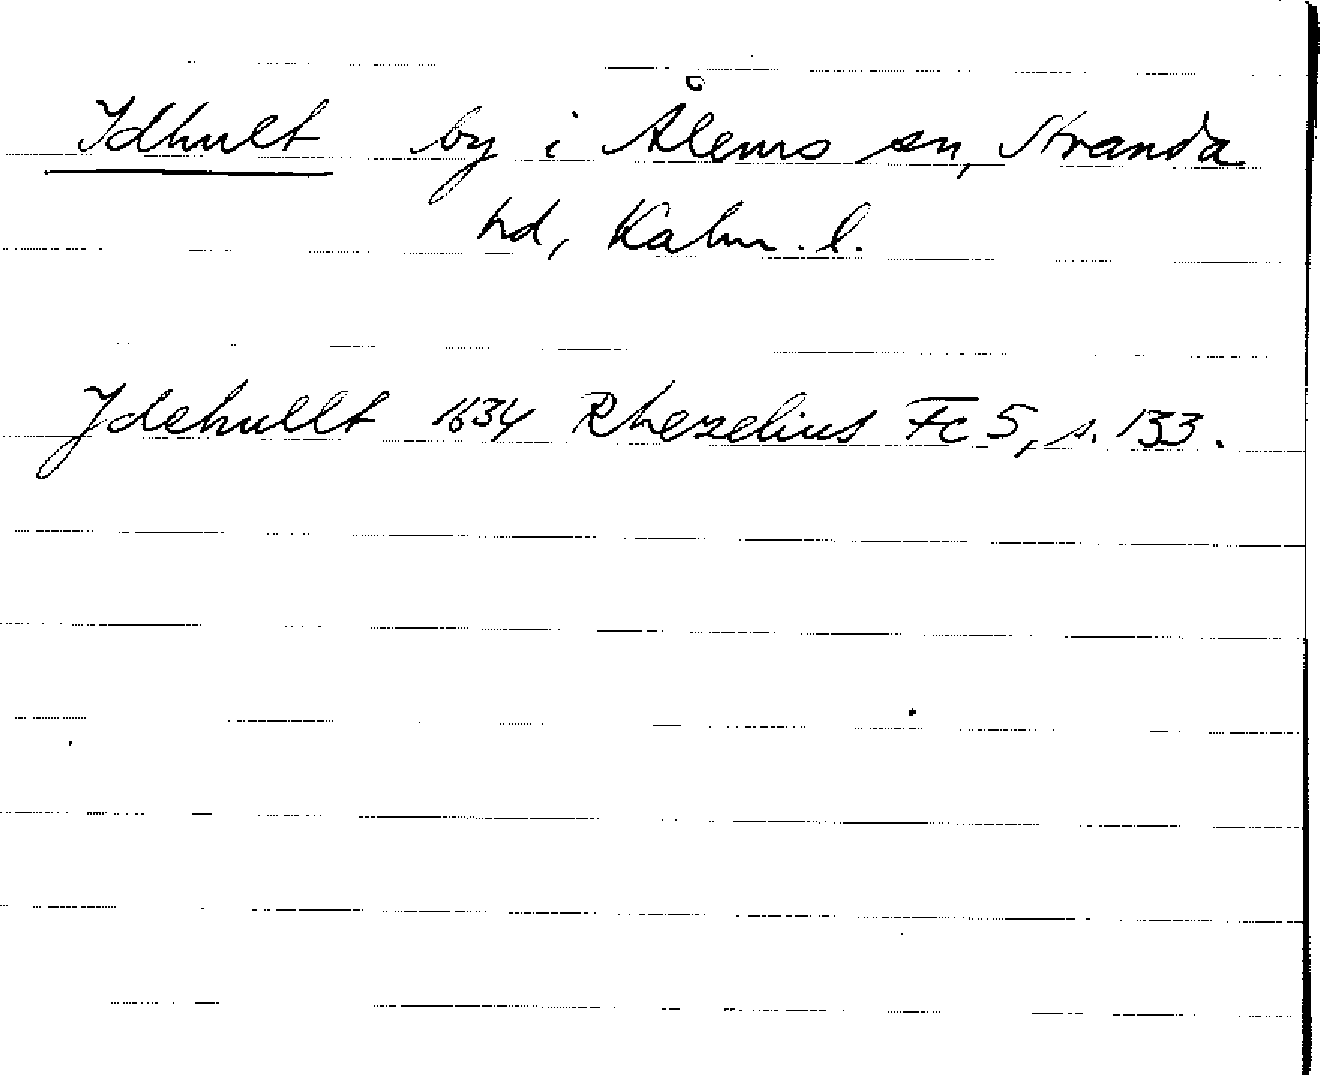 Idhult by i Ålems sn, Stranda
hd, Kalm. l.
Idehullt 1634 Rhezelius Fc 5, s. 133.